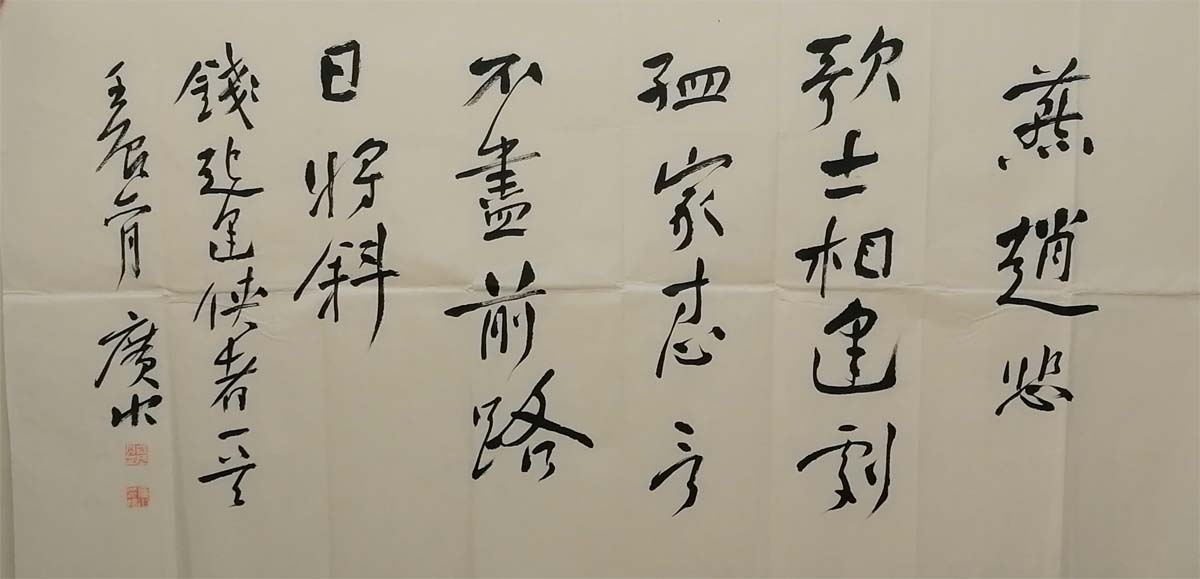 燕趙悲
歌士相逢劇
孟家寸心言
不盡前路
日將斜
錢起逢俠者一首
壬辰六月 廣